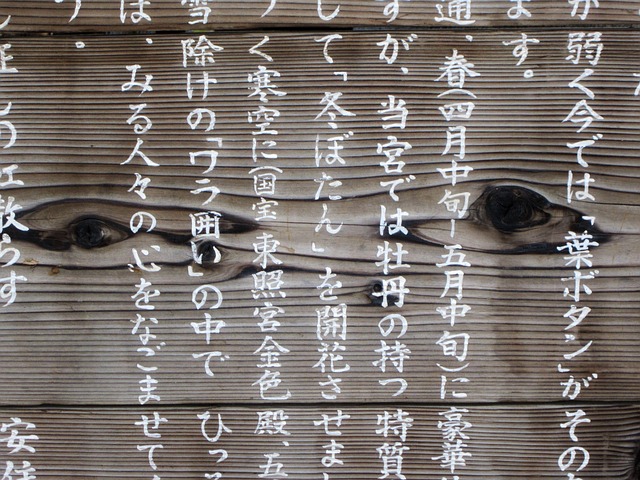 が弱く今では「葉ボタン」がその
ます。
通、春(四月中旬ー五月中旬)に豪華
すが、当宮では牡丹の持つ特質
して「冬ぼたん」を開花させまし
く寒空に(国宝 東照宮金色殿、五
雪除けの「ワラ囲い」の中でひっそ
は、みる人々の心をなごませてく
す。
正しの
らす 安